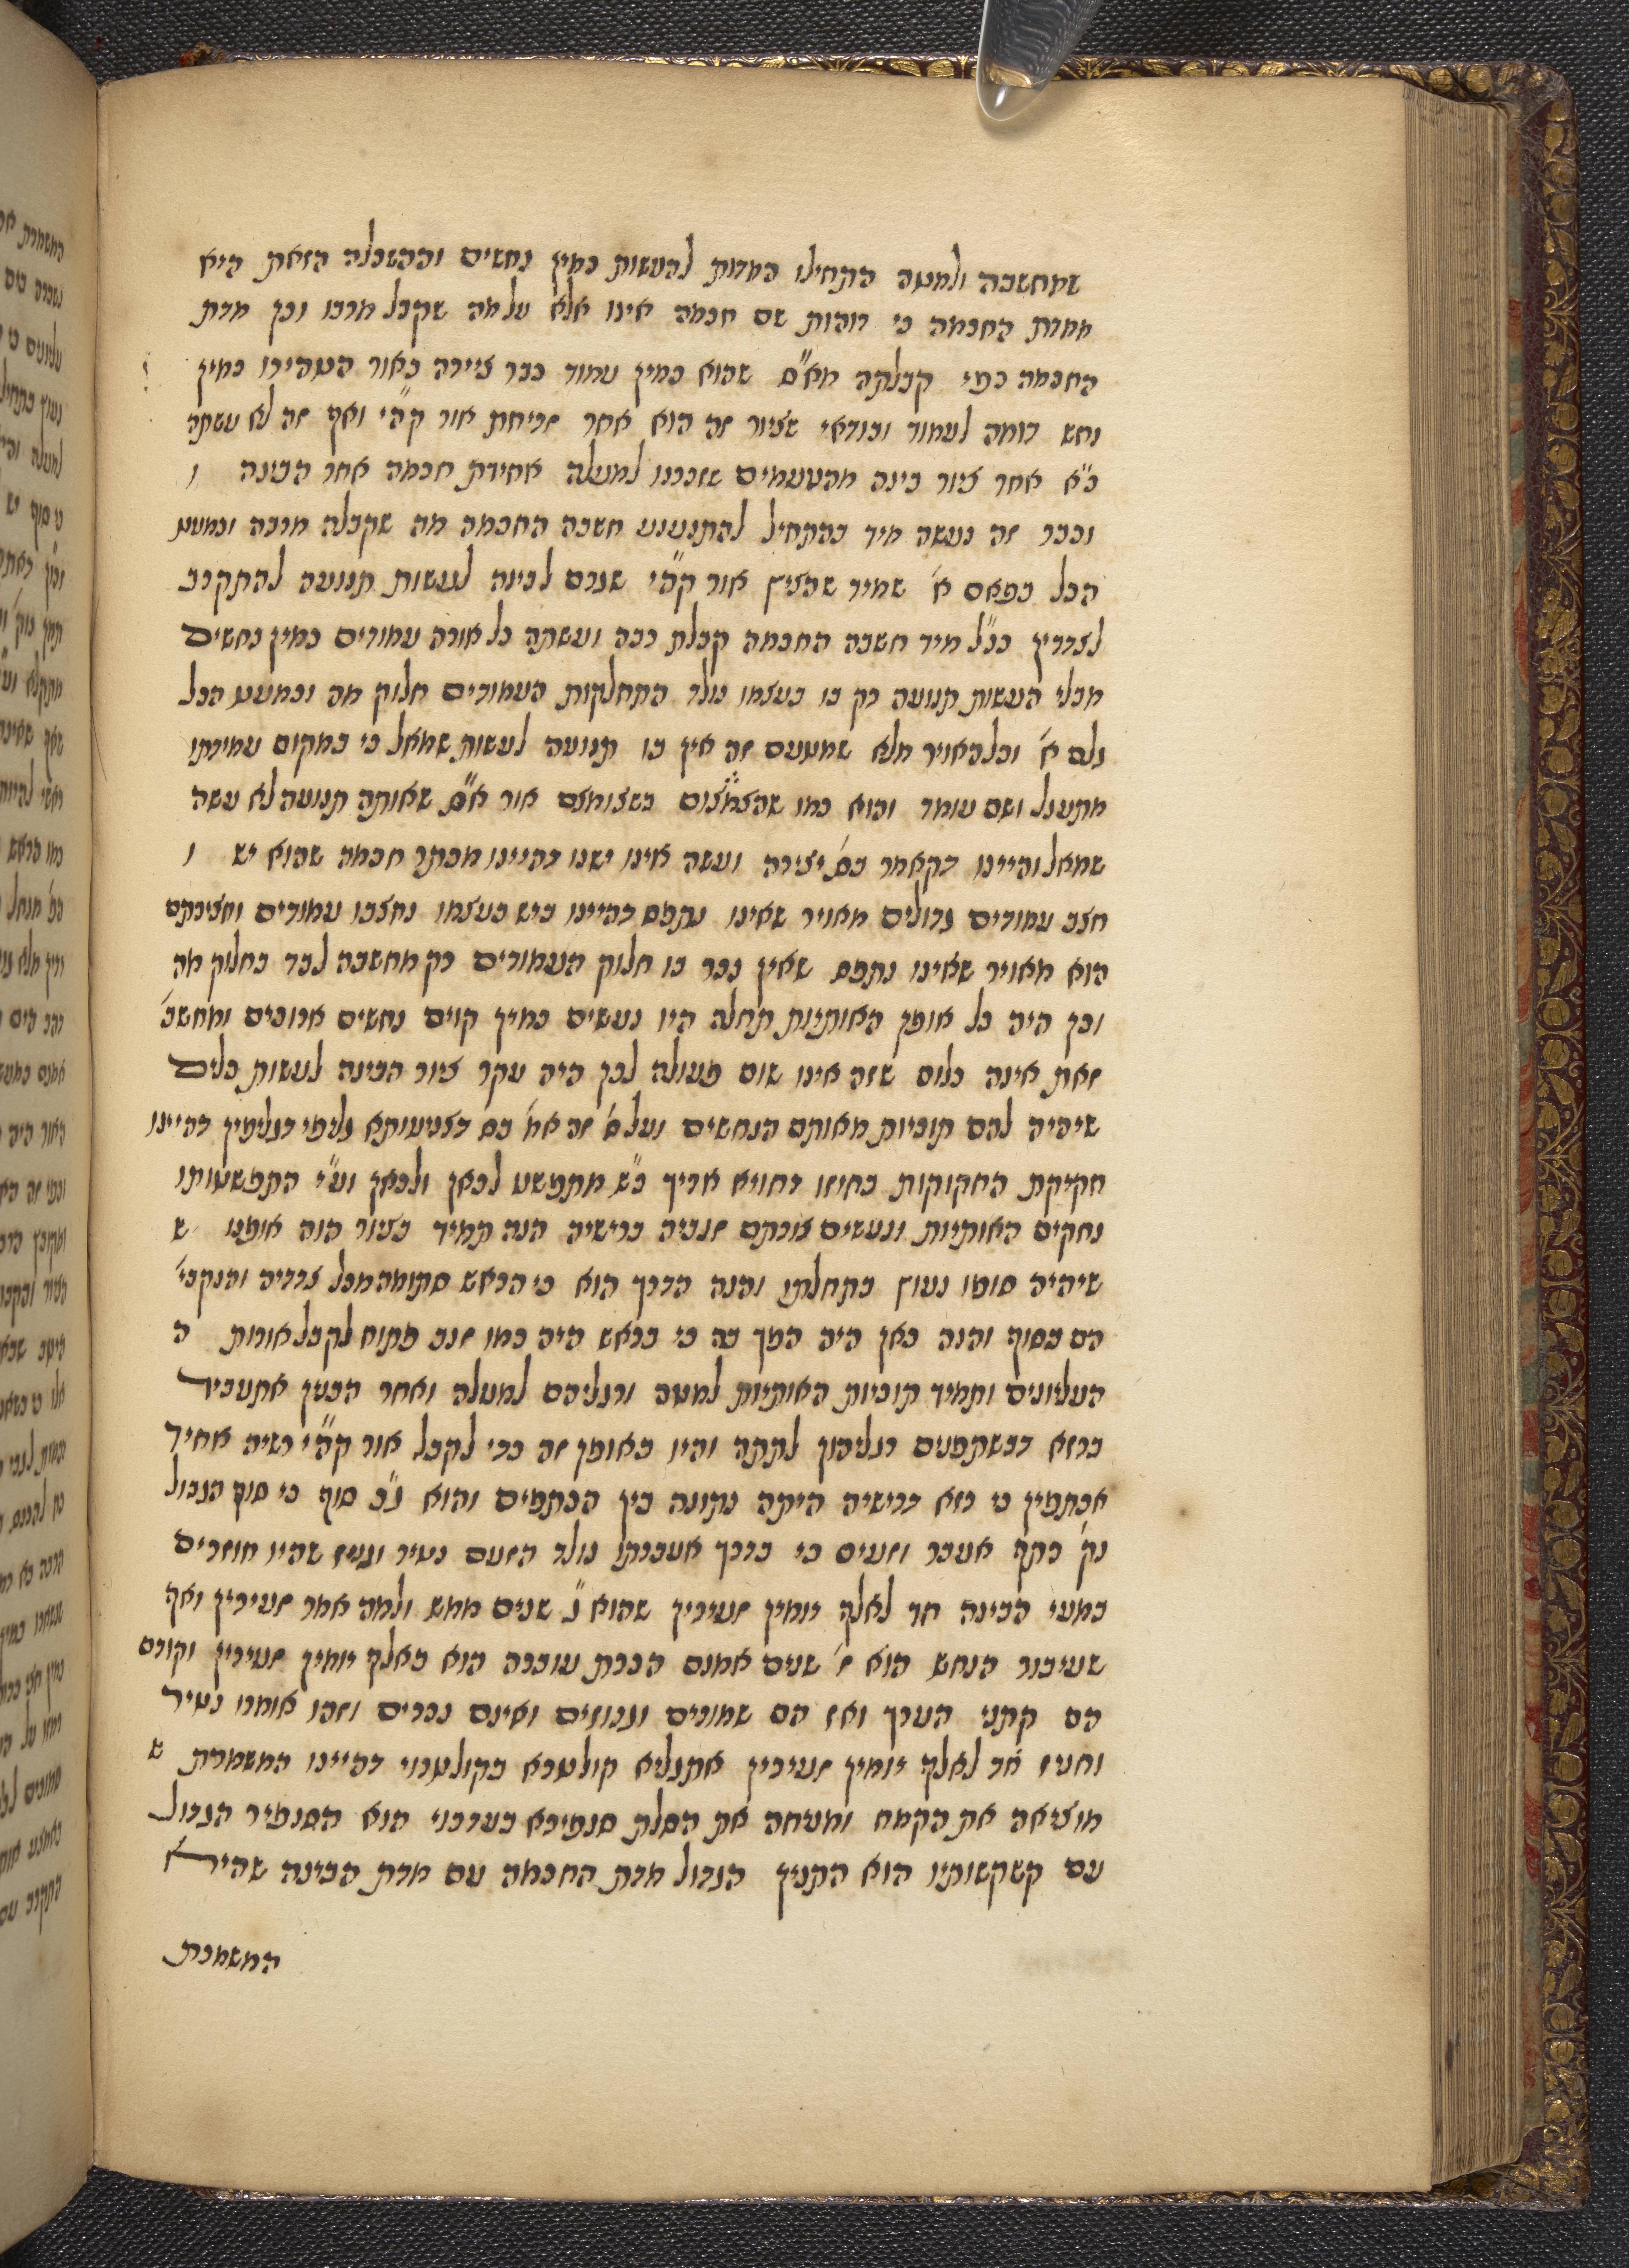 שמחשבה ולמטה התחילו המדות להעשות כמין נחשים וההשכלה הזאת היא
ממדת החכמה כי הוהות שם חכמה אינו אלא על מה שקבל מרבו וכך מדת
החכמה כפי קבלתה מא״ס שהוא כמין עמוד כבר ציירה באור הטהירו כמין
נחש דומה לעמוד ובודאי שציור זה הוא אחר זריחת אור ק״הי ואף זה לא עשתה
כ״א אחר ציור בינה מהטעמים שזכרנו למעלה אחיזת חכמה אחר הבינה ו
וכבר זה נעשה מיד בהתחיל להתנענע חשבה החכמה מה שקבלה מרבה וכמעט
הכל בפאם א׳ שמיד שהציץ אור ק״הי שגרם לבינה לעשות תנועה להתקרב
לצדדין כנ״ל מיד חשבה החכמה קבלת רבה ועשתה כל אורה עמודים כמין נחשים
מבלי העשות תנועה רק בו בעצמו נולד התחלקות העמודים חלוק מה וכמעט הכל
גלם א׳ וכל האויר מלא שמטעם זה אין בו תנועה לעשות שמאל כי במקום עמידתו
מתעגל ושם עומד והוא כמו שהצמצום כשצומצם אור א״ס שאותה תנועה לא עשה
שמאל והיינו דקאמר בס׳ יצירה ועשה אינו ישנו דהיינו מכתר חכמה שהוא יש ו
חצב עמודים גדולים מאויר שאינו נתפס דהיינו ביש בעצמו נחצבו עמודים וחציבתם
הוא מאויר שאינו נתפס שאין נכר בו חלוק העמודים רק מחשבה לבד בחלוק מה
וכך היה כל אופן האותיות תחלה היו נעשים כמין קוים נחשים ארוכים ומחשב׳
זאת אינה כלום שזה אינו שום פעולה לכך היה עקר ציור הבינה לעשות כלים
שיהיה להם תוכיות מאותם הנחשים ועל ס׳ זה אמ׳ בס׳ דצניעותא גליפי דגליפין דהיינו
חקיקת החקוקות כחיזו דחויא אריך כ״ש מתפשט לכאן ולכאן וע״י התפשטותו
נחקים האותיות ונעשים צורתם זנביה ברישיה הנה תמיד בציור הוה אופנו ש
שיהיה סופו נעוץ בתחלתו והנה הדרך הוא כי הראש סתומה מכל צדדיה והנקבי׳
הם בסוף והנה כאן היה הפך בה כי בראש היה כמו זנב פתוח לקבל אורות ה
העליונים ותמיד תוכיות האותיות למטה ורגליהם למעלה ואחר הכנן אתעביד
ברזא דבשתפנים רגליהון לתתה והיו באופן זה כדי לקבל אור ק״הי רשיה אחיד
אכתפין כי רזא ברישיה היתה נתונה בין הכתפים והוא ג״כ סוף כי סוף הגבול
נק׳ כתף אעבר וזעים כי בדרך אעברתו נולד הזעם נטיר וגניז שהיו חוזרים
במעי הבינה חד לאלף יומין זעירין שהוא ג׳ שנים ממש ולמה אמר זעירין ואף
שעיבור הנחש הוא ז׳ שנים אמנם הכרת עוברה הוא באלף יומין זעירין וקודם
הם קטני הערך ואז הם שמורים וגנוזים ואינם נכרים וזהו אומרו נטיר
וחניז חד לאלף יומין זעירין אתגליא קולטרא בקולטרוי דהיינו המשמרת ש
מוציאה את הקמח ומניחה את הסלת סנפירא בעדבוי הוא הסנפיר הגדול
עם קשקשותיו הוא התנין הגדול מדת החכמה עם מדת הבינה שהיא
המשמרת